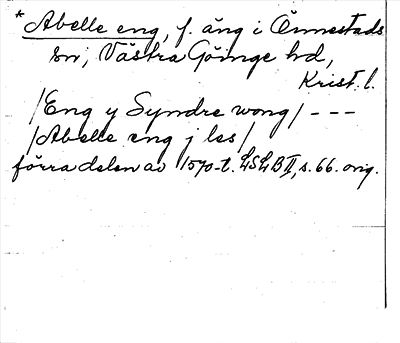 * Abelle eng, f. äng i Önnestads
sn; Västra Göinge hd,
Krist. l.
/Eng y Syndre wong/ - - -
/Abelle eng j les/
förra delen av 1570-t. LSLB II, s. 66. orig.